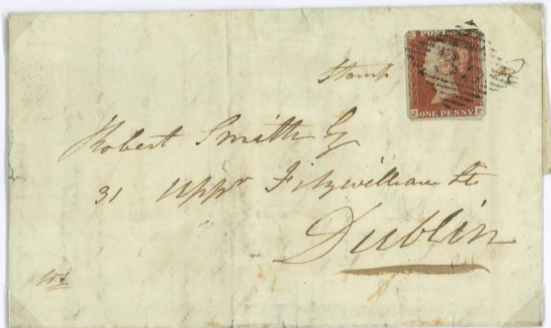 POSTAGE
Stamp
ONE PENNY
Robert Smith Esq
31 Uppr Fitzwilliam St
Dublin